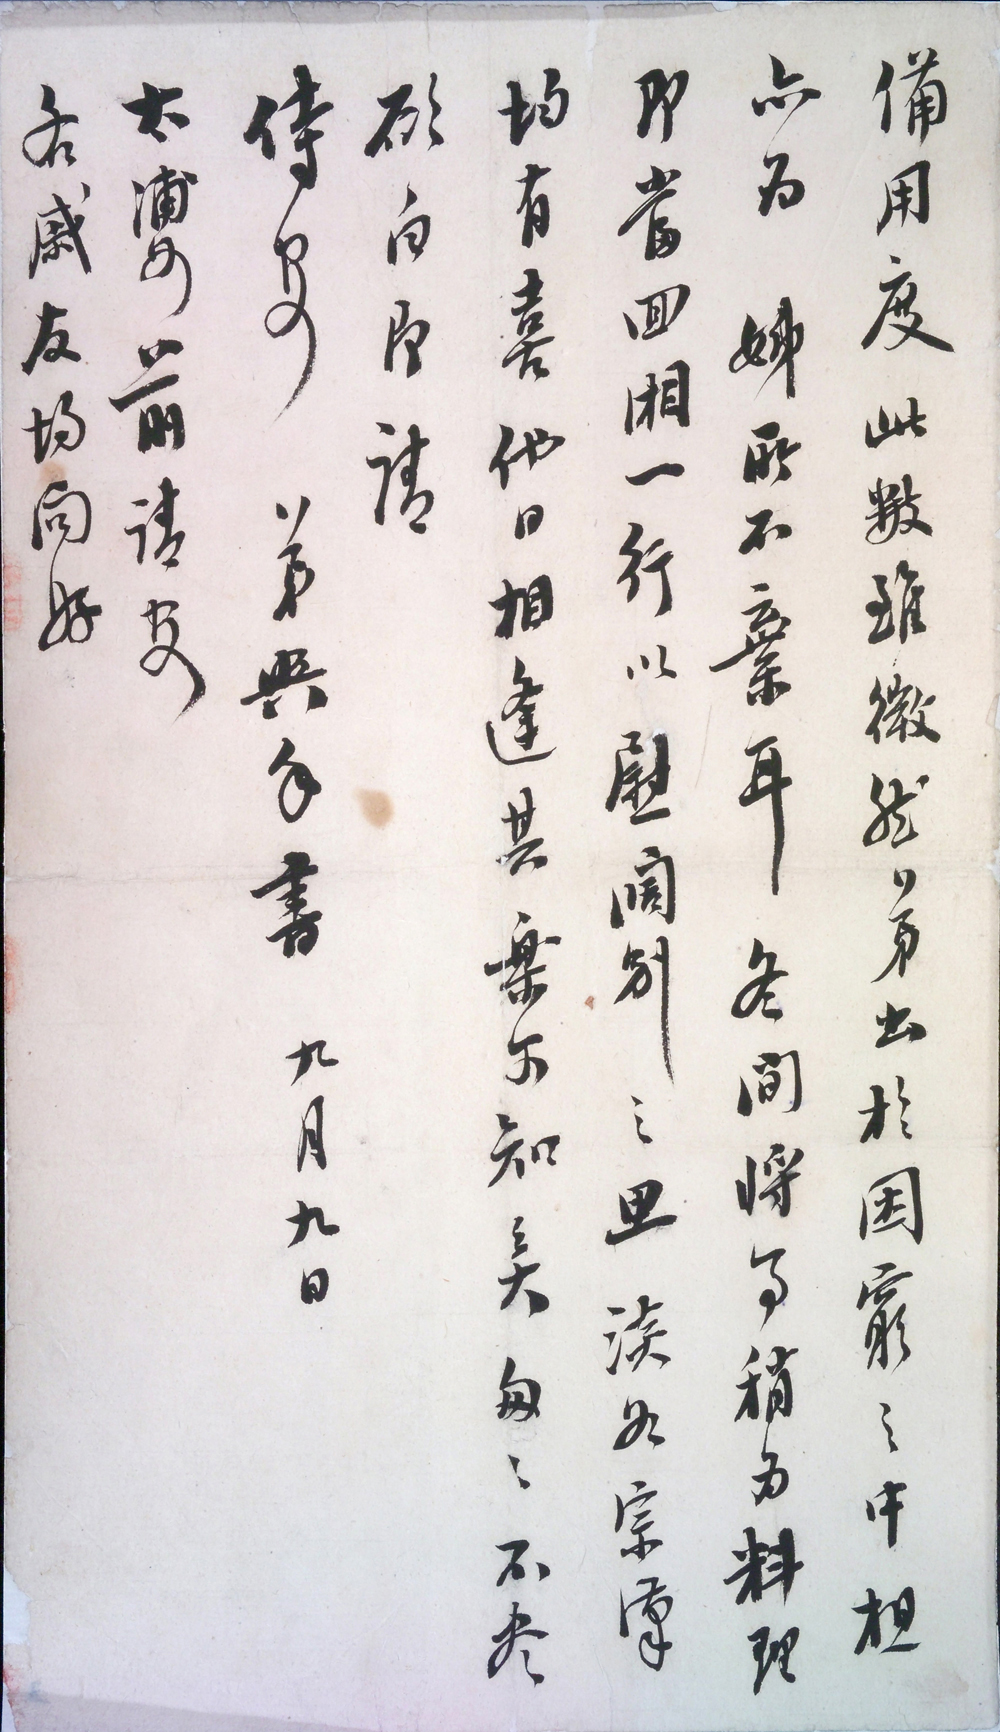 備用度此數雖微然弟出於困窮之中想
亦為姊所不棄耳冬間將事稍為料理
即當回湘一行以慰闊别之思淡如宗漢
均有喜他日相逢其樂可知矣匆々不尽
欲白即請
侍安　弟興手書　九月九日
太婆前請安
各戚友均问好